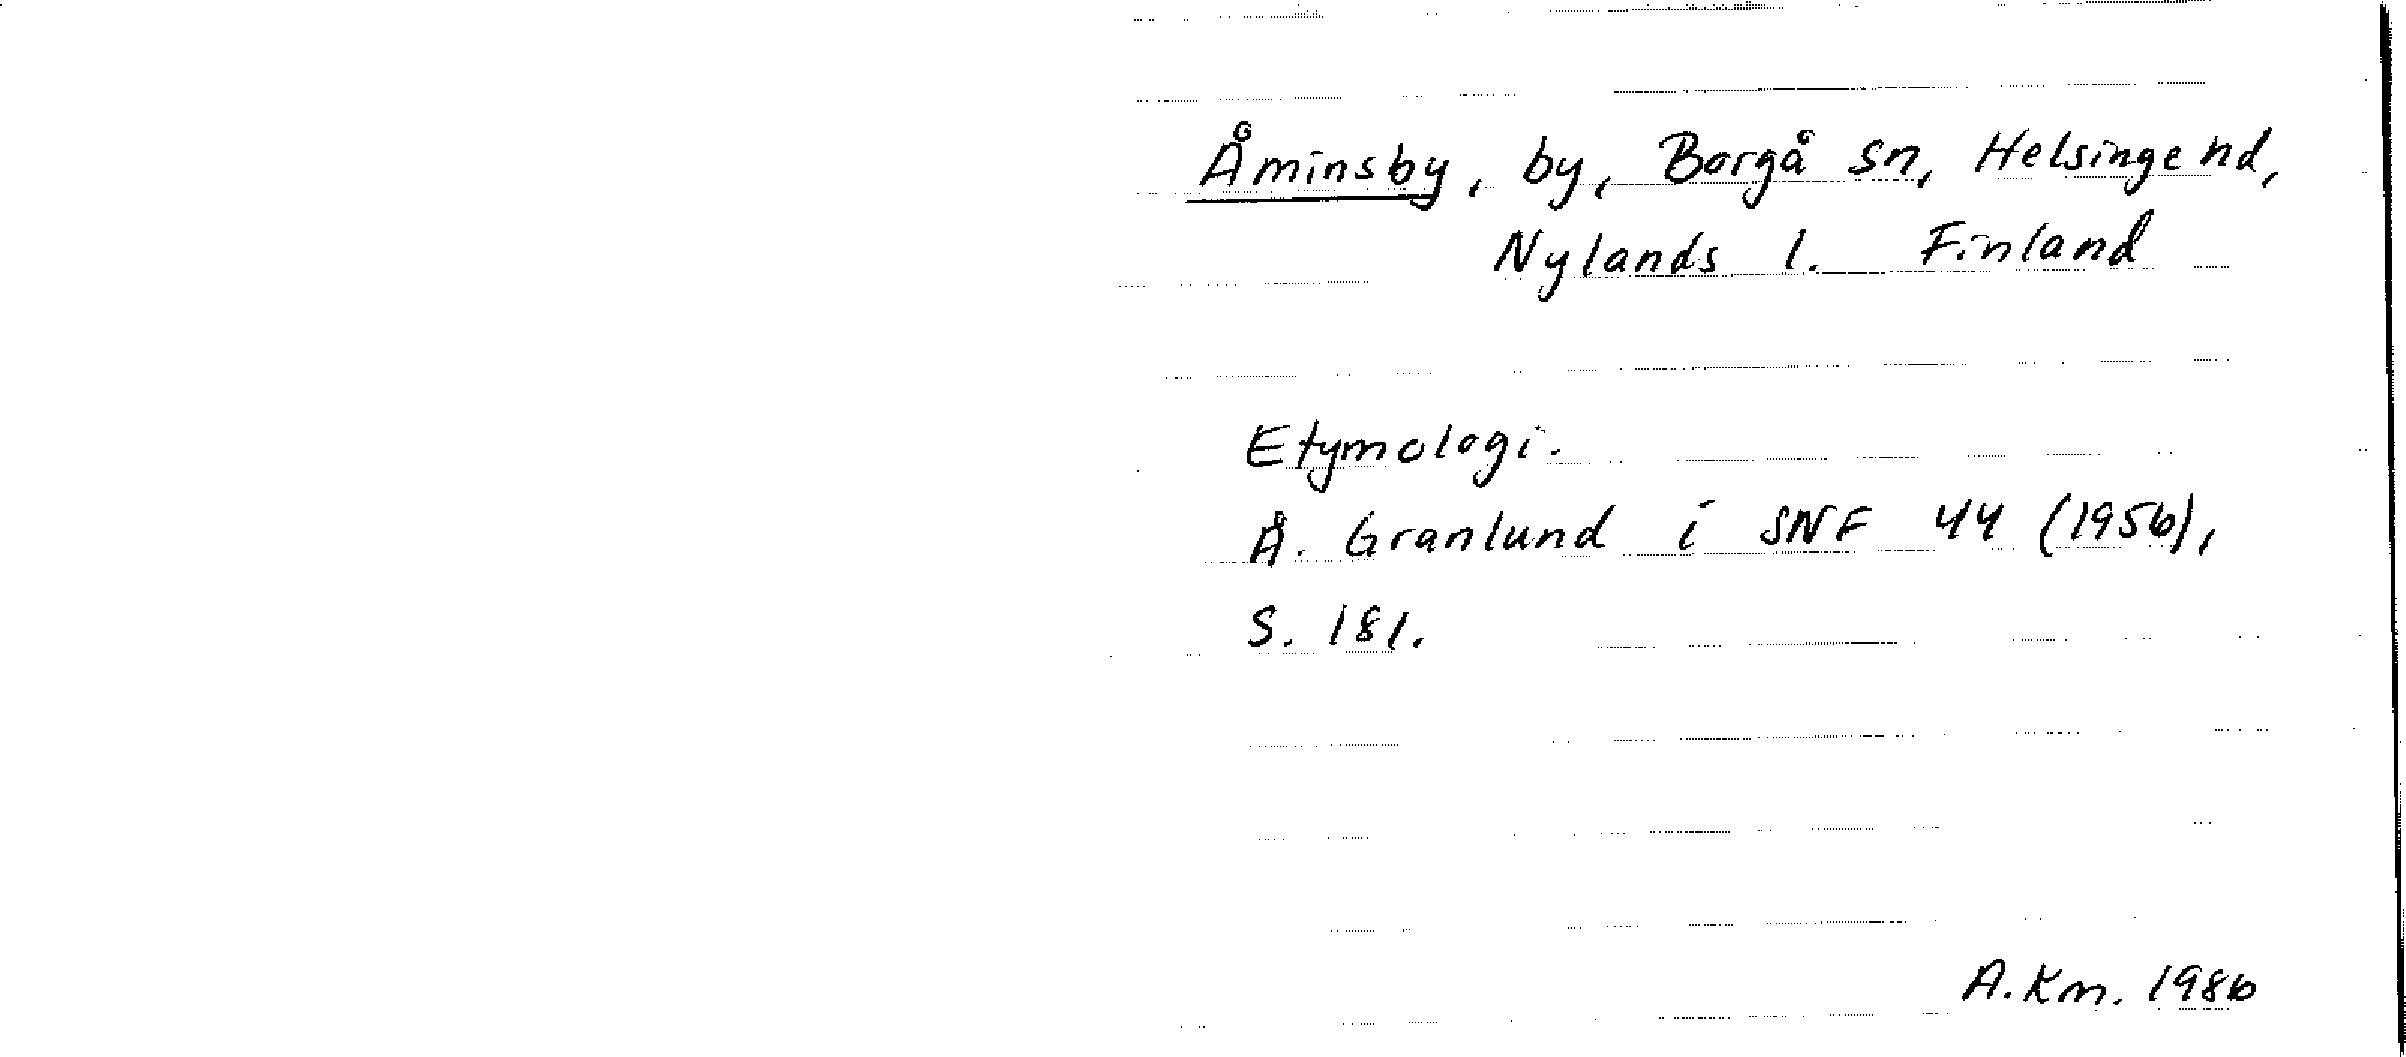 Åminsby, by, Borgå sn, Helsinge hd,
Nylands l. Finland
Etymologi.
Å. Granlund i SNF 44 (1956),
S. 181.
A.Km. 1986